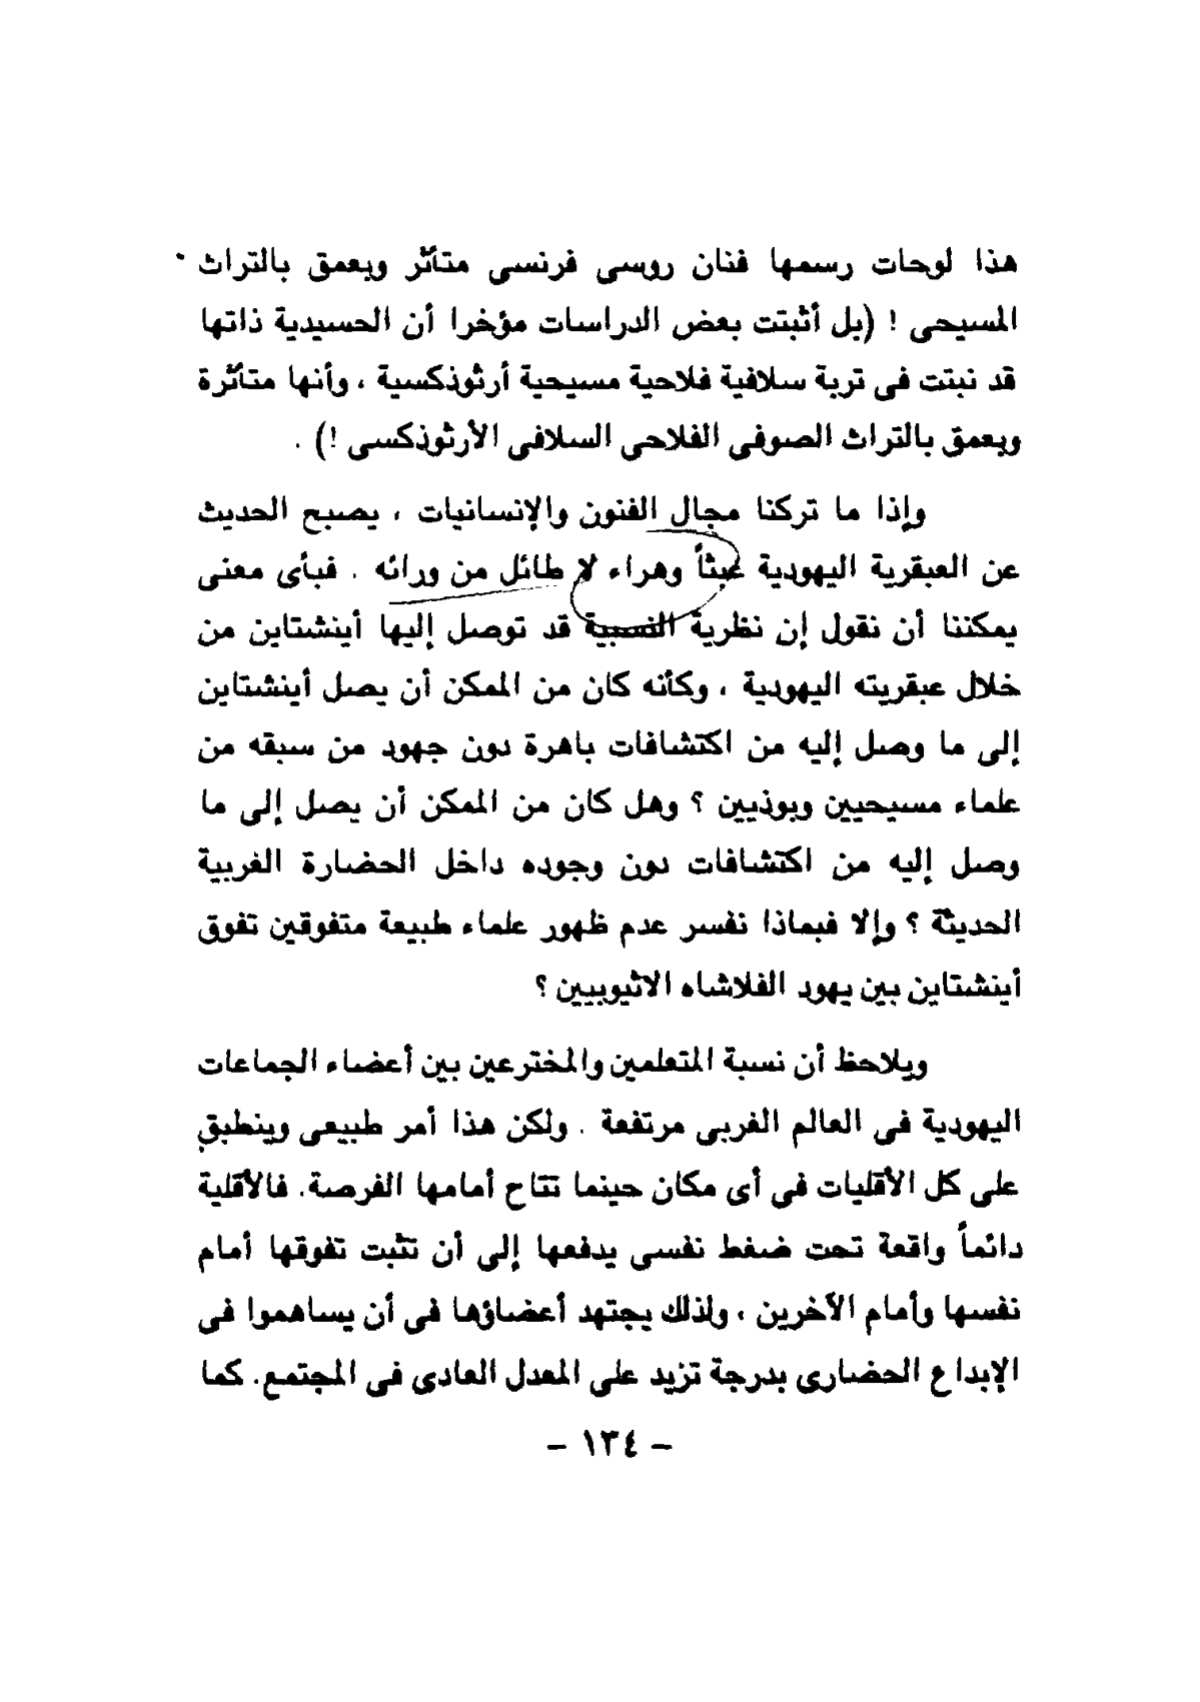 هذا لوحات رسمها فنان روسى فرنسى متأثر وبعمق بالتراث
المسيحى ! (بل أثبتت بعض الدراسات مؤخرا أن الحسيدية ذاتها
قد نبتت فى تربة سلافية فلاحية مسيحية أرثوذكسية ، وأنها متأثرة
وبعمق بالتراث الصوفى الفلاحى السلافى الأرثوذكسى !) .
وإذا ما تركنا مجال الفنون والإنسانيات ، يصبح الحديث
عن العبقرية اليهودية عبثاً وهراء لا طائل من ورائه . فبأى معنى
يمكننا أن نقول إن نظرية النسبية قد توصل إليها أينشتاين من
خلال عبقريته اليهودية ، وكأنه كان من الممكن أن يصل أينشتاين
إلى ما وصل إليه من اكتشافات باهرة دون جهود من سبقه من
علماء مسيحيين وبوذيين ؟ وهل كان من الممكن أن يصل إلى ما
وصل إليه من اكتشافات دون وجوده داخل الحضارة الغربية
الحديثة ؟ وإلا فبماذا نفسر عدم ظهور علماء طبيعة متفوقين تفوق
أينشتاين بين يهود الفلاشاه الاثيوبيين ؟
ويلاحظ أن نسبة المتعلمين والمخترعين بين أعضاء الجماعات
اليهودية فى العالم الغربى مرتفعة . ولكن هذا أمر طبيعى وينطبق
على كل الأقليات فى أى مكان حينما تتاح أمامها الفرصة. فالأقلية
دائماً واقعة تحت ضغط نفسى يدفعها إلى أن تثبت تفوقها أمام
نفسها وأمام الآخرين ، ولذلك يجتهد أعضاؤها فى أن يساهموا فى
الإبداع الحضارى بدرجة تزيد على المعدل العادى فى المجتمع. كما
– ١٣٤ –